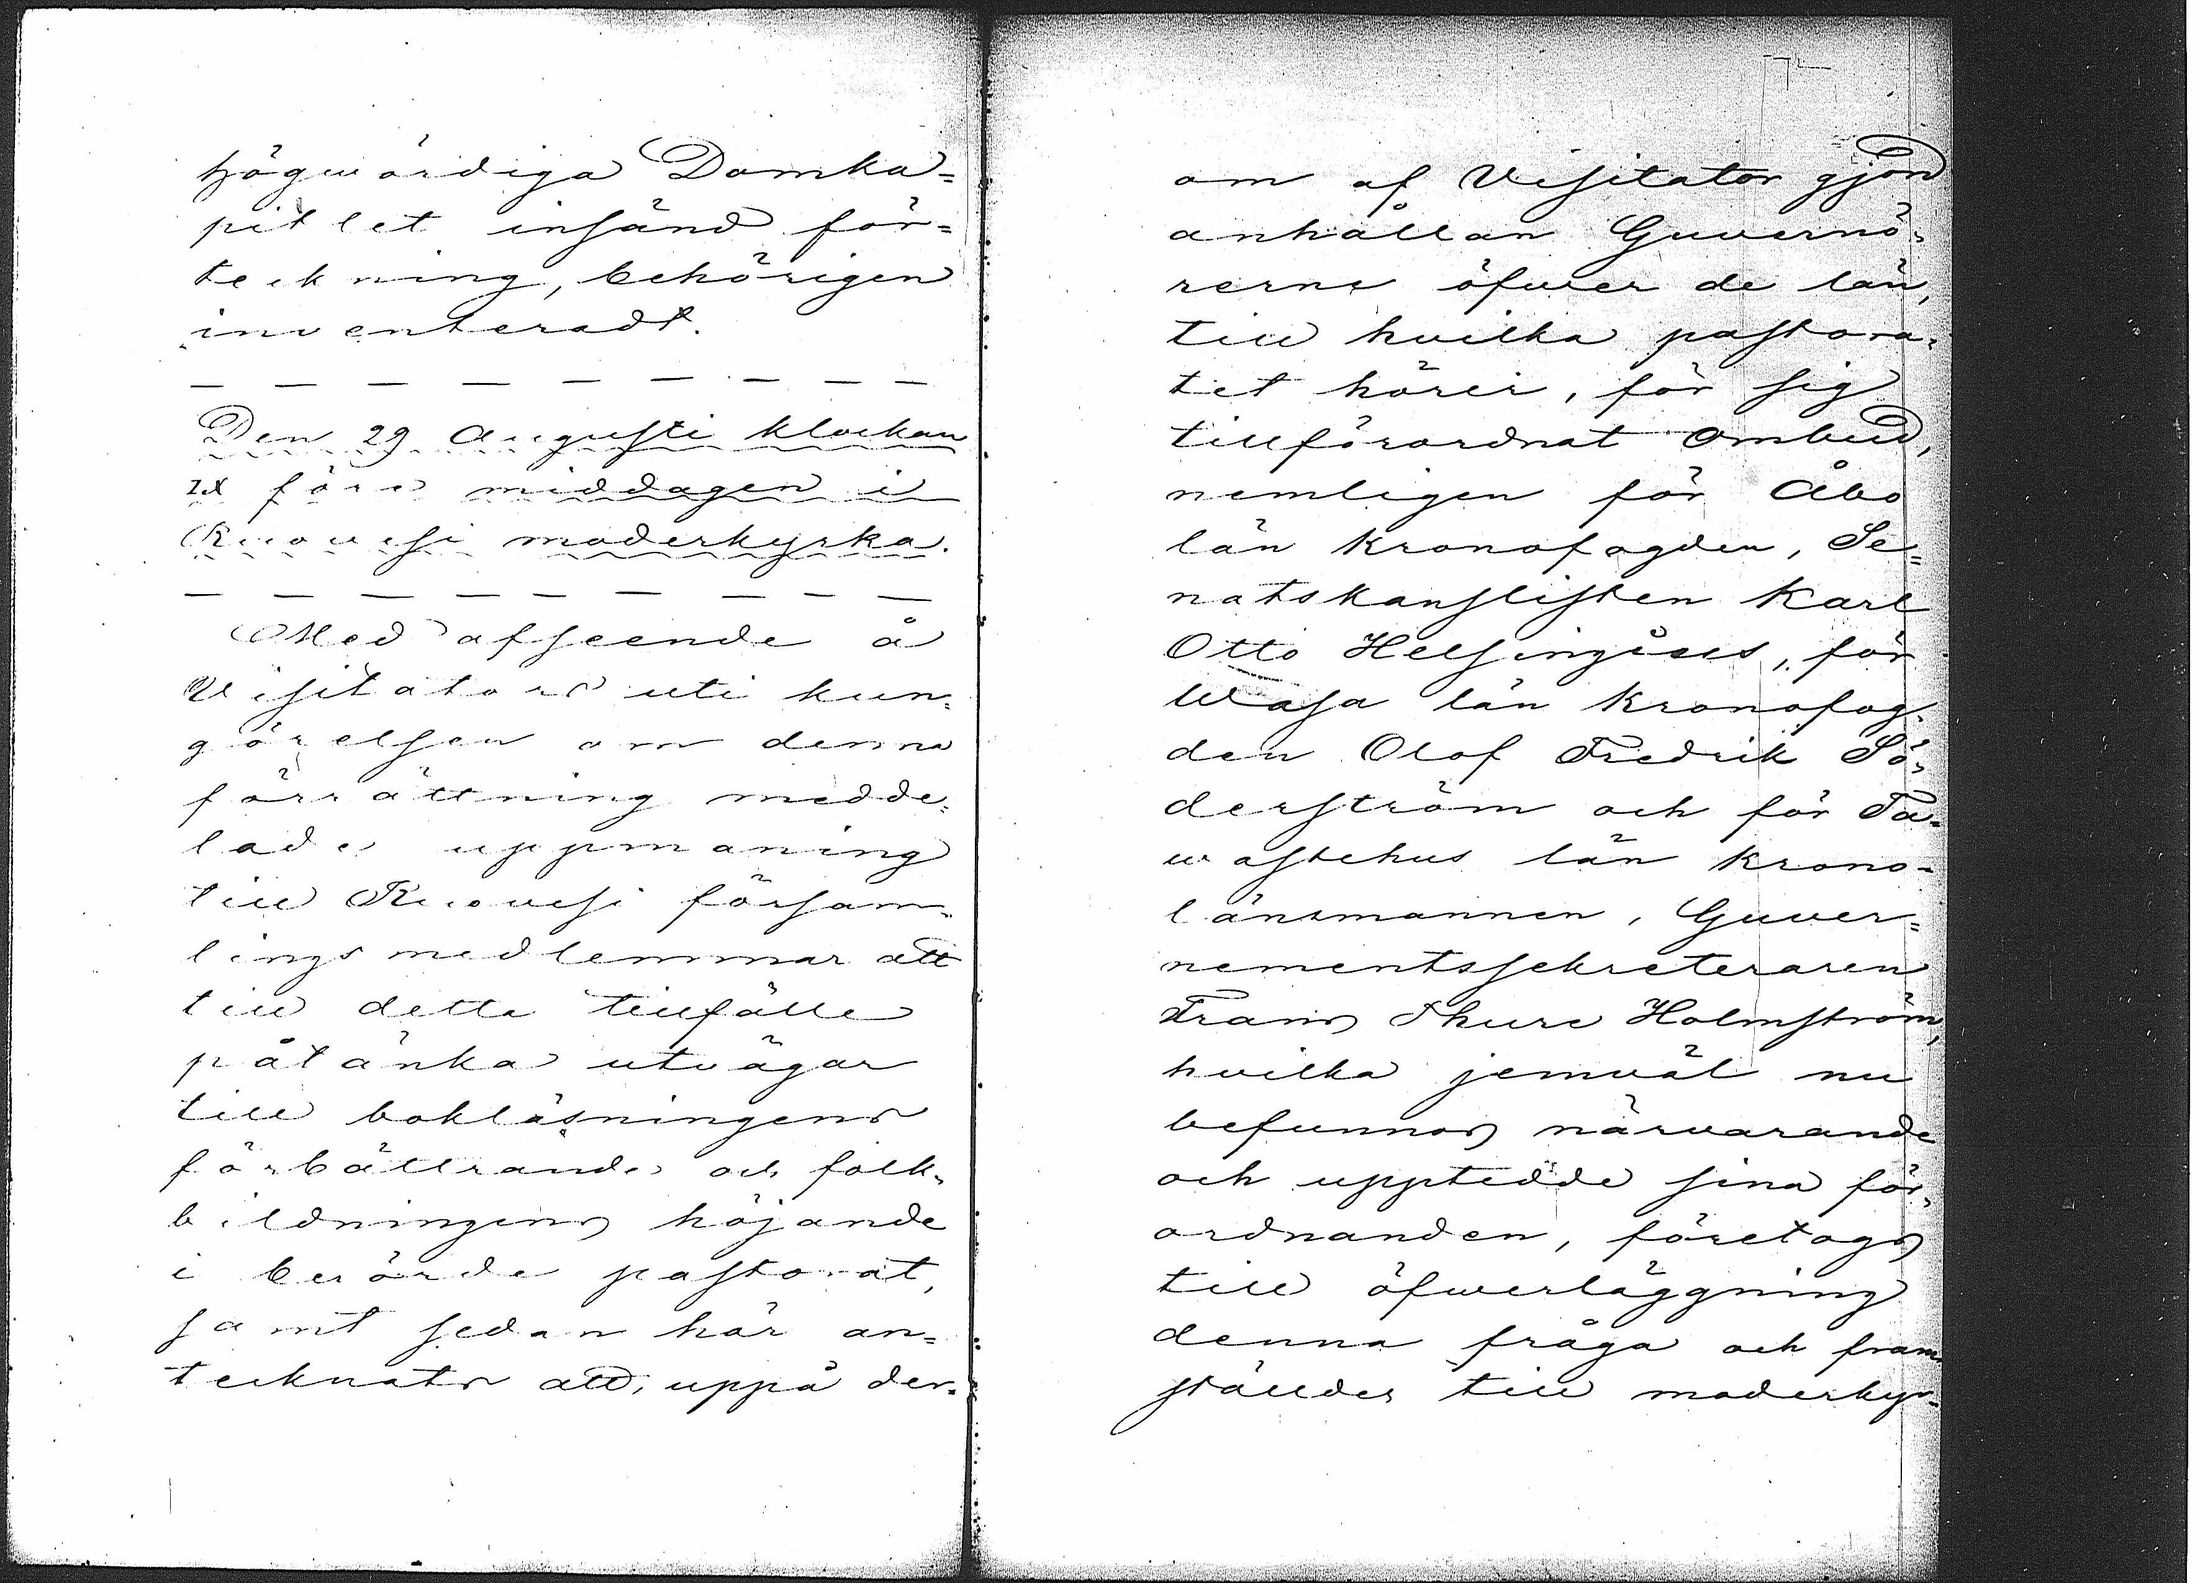 högwördiga Domka=
pitlet insänd för=
teckning, behörigen
inventeradt.
Den 29 Augusti klockan
IX före middagen i
Ruovesi moderkyrka.
Med afseende å
Visitators uti kun=
görelsen om denna
förrättning medde=
lade uppmaning
till Ruovesi försam=
lings medlemmar att
till detta tillfälle
påtänka utvägar
till bokläsningens
förbättrande och folk=
bildningens höjande
i berörde pastorat,
samt sedan här an=
tecknats att, uppå der=
om af Visitator gjord
anhållan Guvernö=
rerne öfwer de län,
till hvilka pastora=
tet hörer, för sig
tillförordnat ombud,
nemligen för Åbo
län Kronofogden, Se=
natskanslisten Karl
Otto Helsingius, för
Wasa län Kronofog=
den Olof Fredrik Sö=
derström och för Ta=
wastehus län Krono=
länsmannen, Guver=
nementssekreteraren
Frans Thure Holmström,
hvilka jemväl nu
befunnos närvarande
och upptedde sina för=
ordnanden, företogs
till öfwerläggning
denna fråga och fram
ställdes till moderkyr=